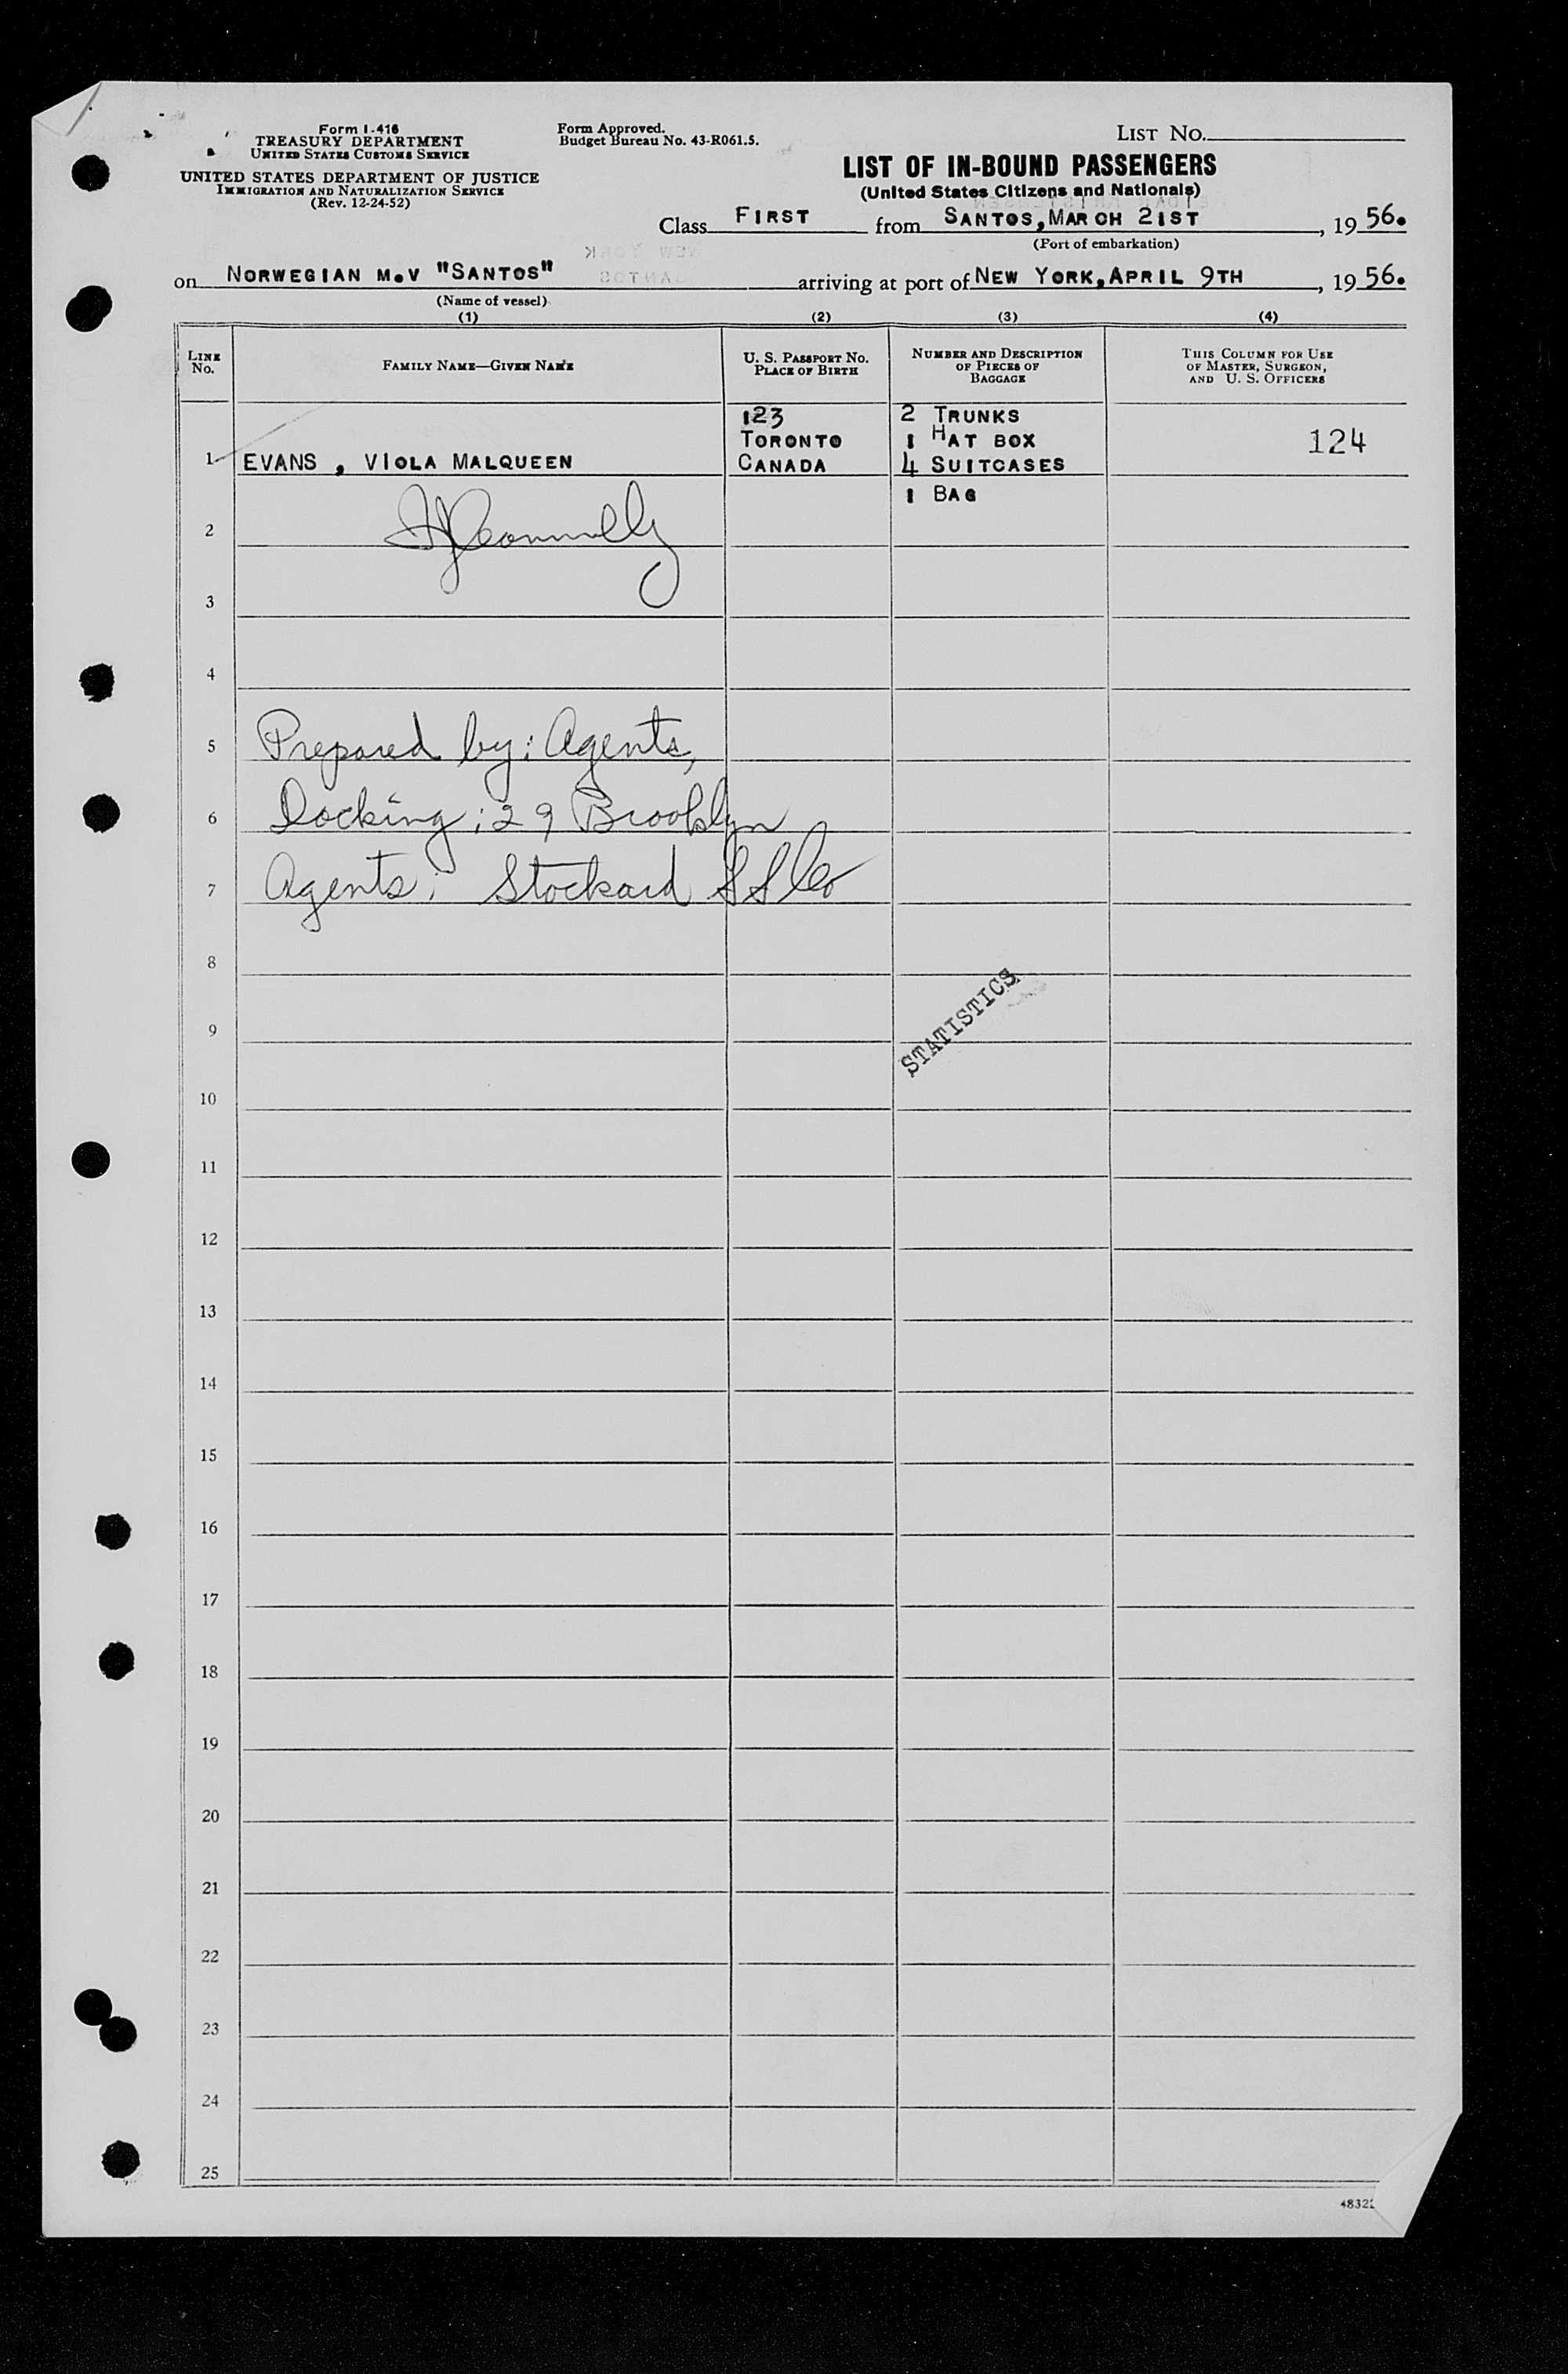 Form I-416
TREASURY DEPARTMENT
UNITED STATES CUSTOMS SERVICE
UNITED STATES DEPARTMENT OF JUSTICE
IMMIGRATION AND NATURALIZATION SERVICE
(Rev. 12-24-52)
Form Approved.
Budget Bureau No. 43-R061.5.
LIST NO.
LIST OF IN-BOUND PASSENGERS
(United States Citizens and Nationals)
Class FIRST from SANTOS, MARCH 21ST, 1956.
(Port of embarkation)
on NORWEGIAN M.V "SANTOS" arriving at port of NEW YORK, APRIL 9TH, 1956.
(Name of vessel)
(1) (2) (3) (4)
LINE NO.
FAMILY NAME—GIVEN NAME
U. S. PASSPORT NO.
PLACE OF BIRTH
NUMBER AND DESCRIPTION
OF PIECES OF
BAGGAGE
THIS COLUMN FOR USE
OF MASTER, SURGEON,
AND U. S. OFFICERS
123 2 TRUNKS
TORONTO 1 HAT BOX 124
1 EVANS, VIOLA MALQUEEN CANADA 4 SUITCASES
1 BAG
2
3
4
5 Prepared by: Agents,
6 Docking: 29 Brooklyn
7 Agents: Stockard SS Co
8
STATISTICS
9
10
11
12
13
14
15
16
17
18
19
20
21
22
23
24
25